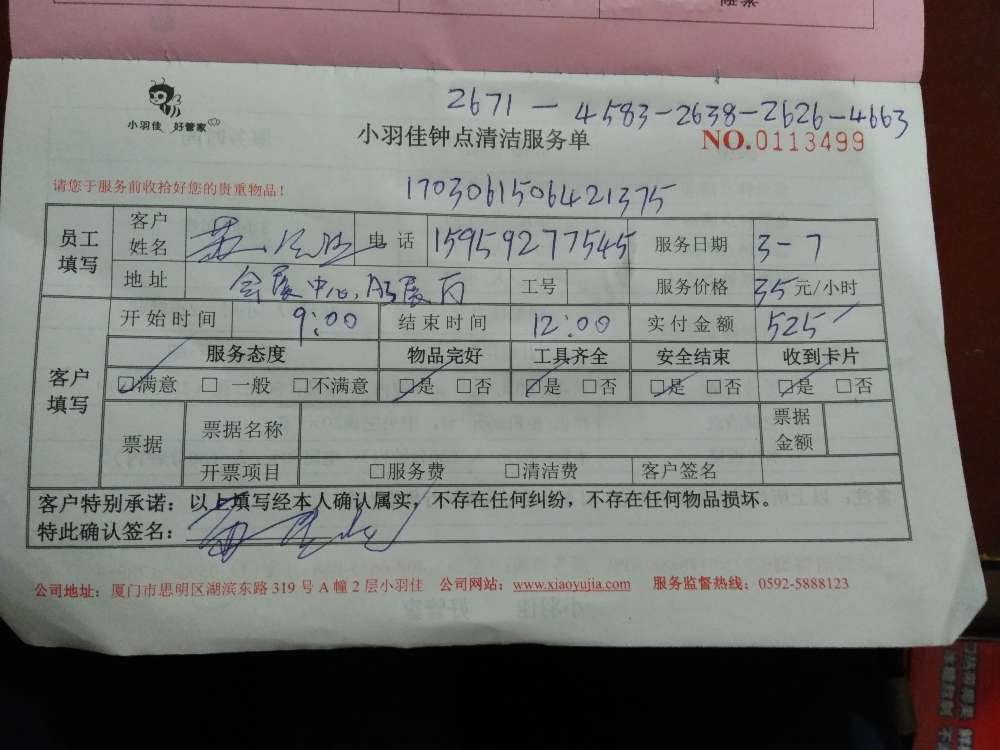 2671-4583-2638-2626-4663
小羽佳 好管家
小羽佳钟点清洁服务单
NO.0113499
请您于服务前收拾好您的贵重物品！
1703061506421375
员工填写 客户姓名 电话 15959277545 服务日期 3-7
地址 会展中心,A3展厅 工号 服务价格 35元/小时
开始时间 9:00 结束时间 12:00 实付金额 525
服务态度 物品完好 工具齐全 安全结束 收到卡片
客户填写 □满意 □一般 □不满意 □是 □否 □是 □否 □是 □否 □是 □否
票据 票据名称 票据金额
开票项目 □服务费 □清洁费 客户签名
客户特别承诺：以上填写经本人确认属实，不存在任何纠纷，不存在任何物品损坏。
特此确认签名：
公司地址：厦门市思明区湖滨东路319号A幢2层小羽佳 公司网站：www.xiaoyujia.com 服务监督热线：0592-5888123